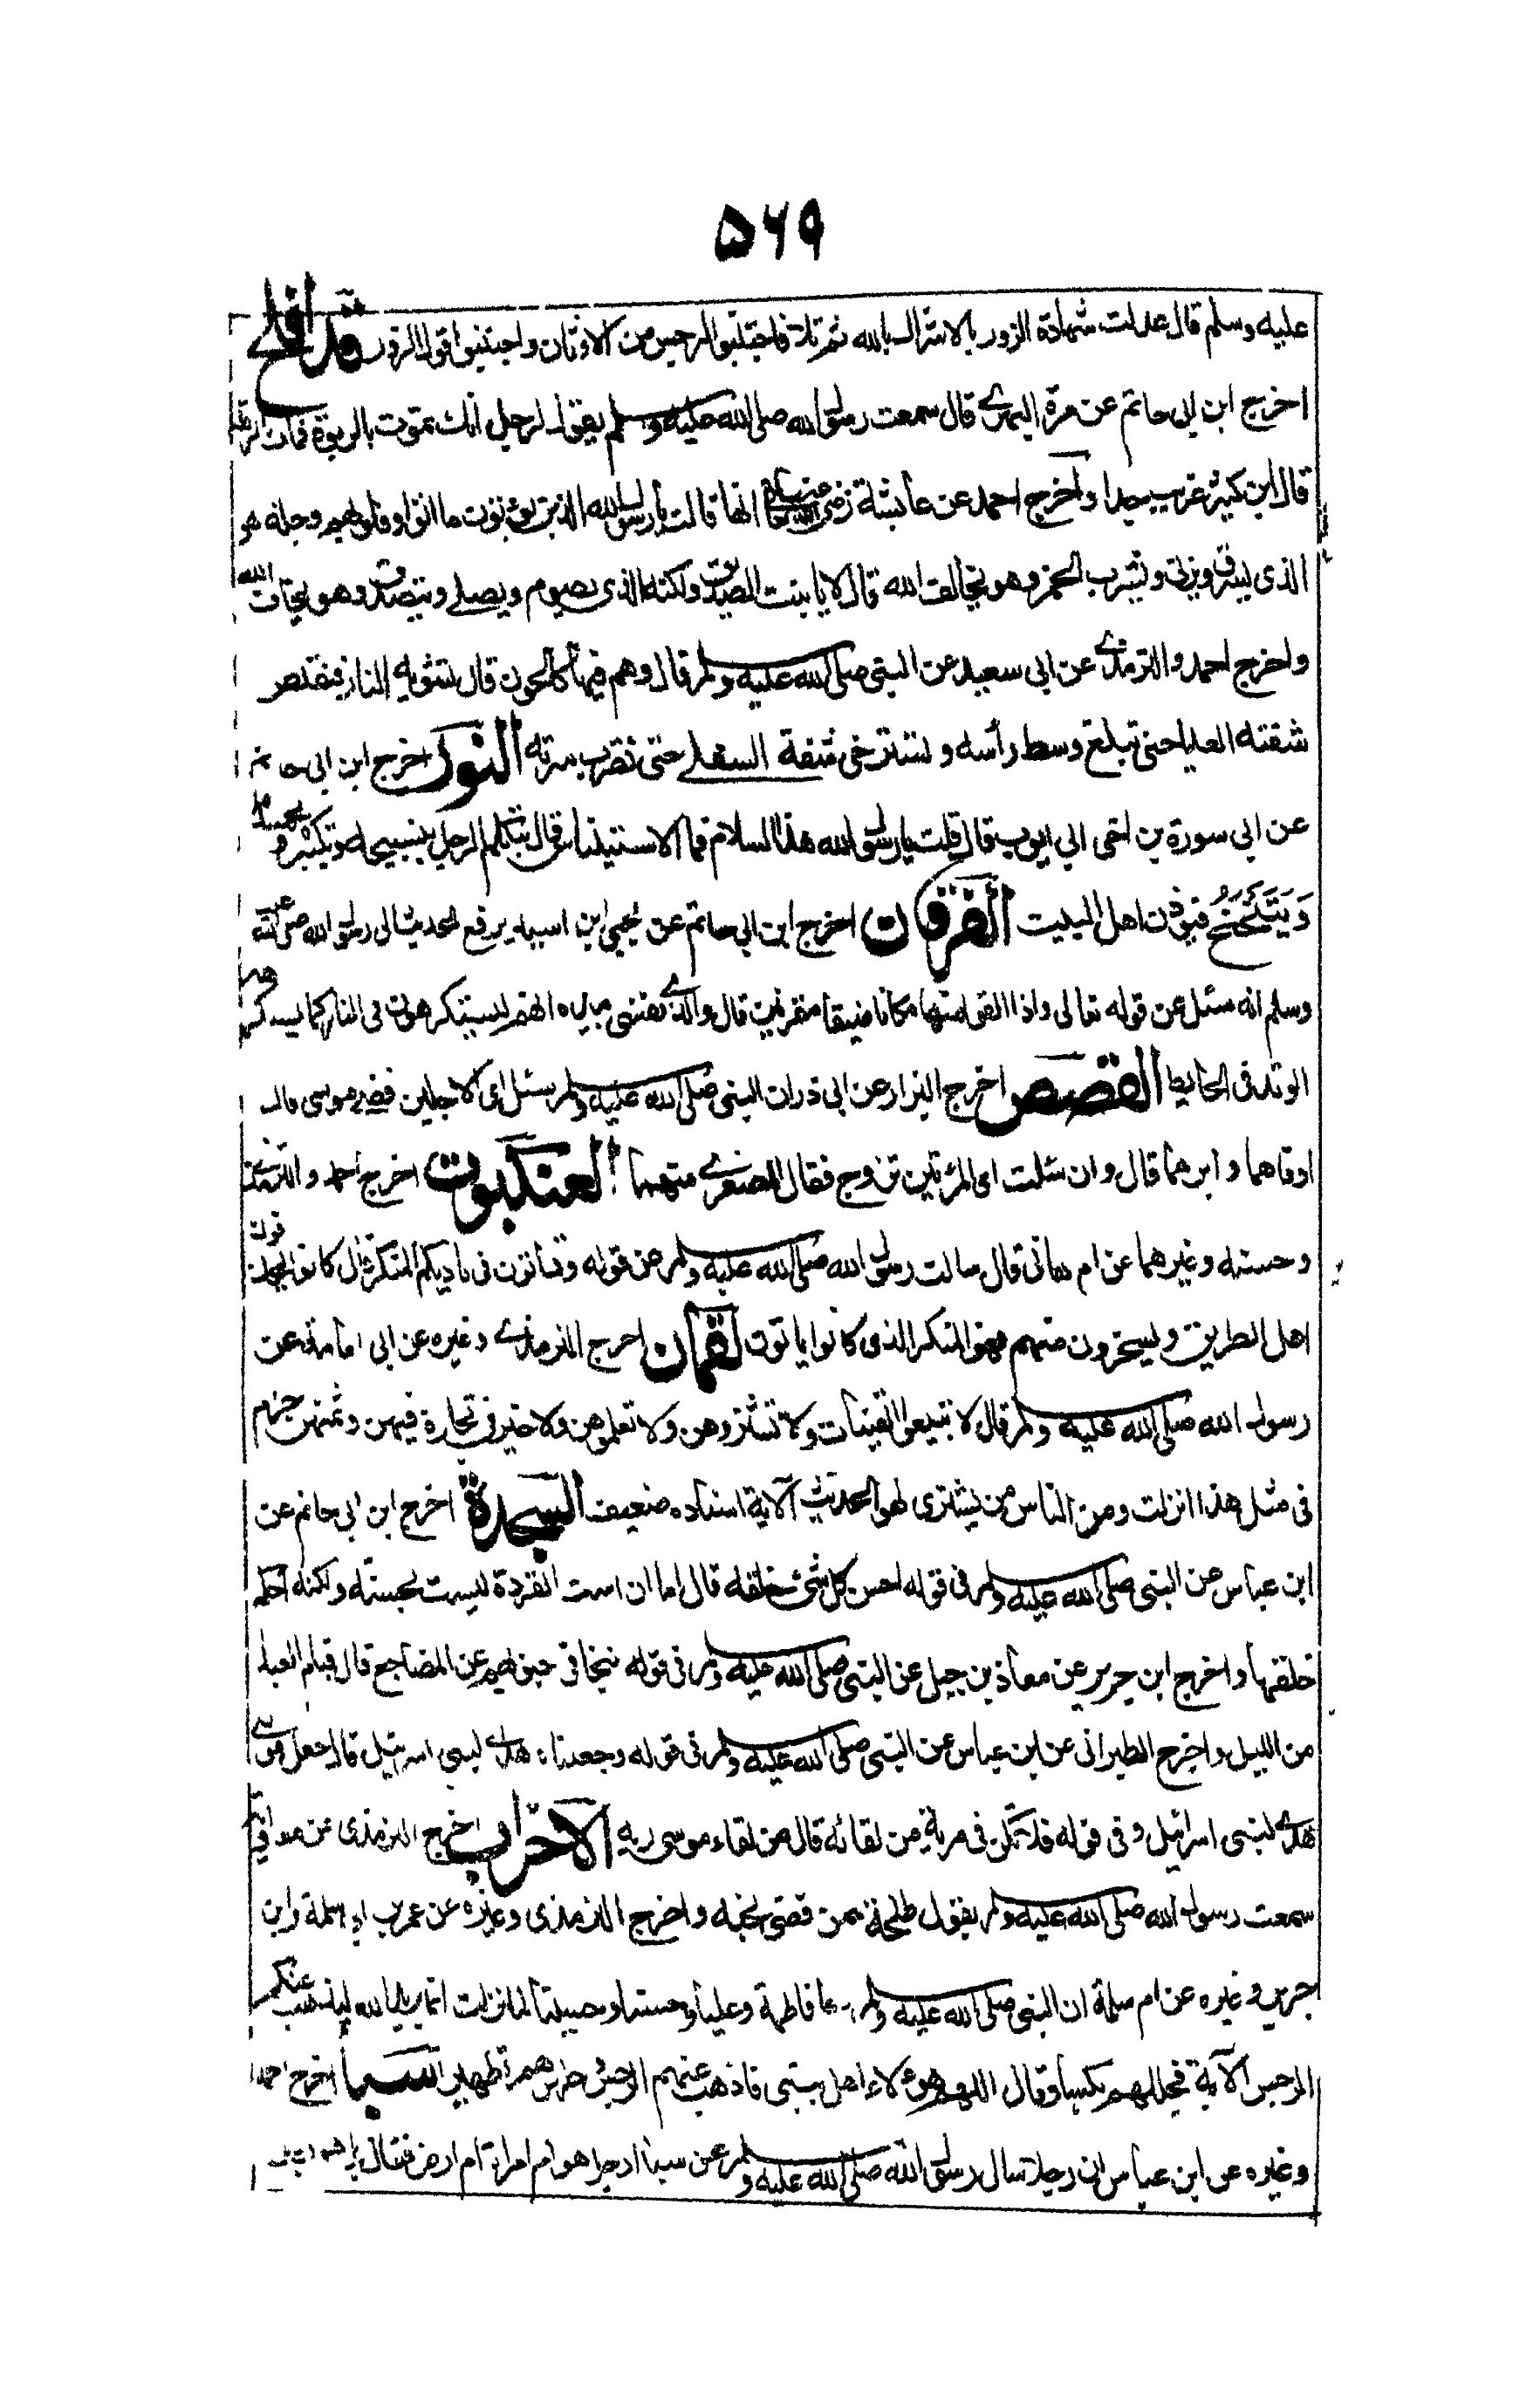 ۵۶۹
عليه وسلم قال عدلت شهادة الزور بالاشراك بالله ثم تلا فاجتنبوا الرجس من الاوثان واجتنبوا قول الزور قد افلح
اخرج ابن ابي حاتم عن مرة البهزي قال سمعت رسول الله صلى الله عليه وسلم يقول لرجل انك تموت بالربوة فمات بالرملة
قال ابن كثير غريب جدا واخرج احمد عن عائشة رضى الله تعالى عنها انها قالت يا رسول الله الذين يؤتون ما اتوا وقلوبهم وجلة هو
الذى يسرق ويزنى ويشرب الخمر وهو يخاف الله قال لا يا بنت الصديق ولكنه الذى يصوم ويصلے ويتصدق وهو يخاف الله
واخرج احمد والترمذے عن ابى سعيد عن النبى صلى الله عليه وسلم قال وهم فيها كالحون قال تشويه النار فتقلص
شفته العليا حتى تبلغ وسط رأسه وتسترخى شفة السفلے حتى تضرب سرته النور اخرج ابن ابى حاتم
عن ابى سورة بن اخى ابى ايوب قال قلت يا رسول الله هذا السلام فما الاستيناس قال يتكلم الرجل بتسبيحة وتكبيرة وتحميدة
وَيَتَنَحْنَحُ فيؤذن اهل البيت الفرقان اخرج ابن ابى حاتم عن يحيى ابن اسيد يرفع الحديث الى رسول الله صلى الله عليه
وسلم انه سئل عن قوله تعالى واذا القوا منها مكانا ضيقا مقرنين قال والذے نفسى بيده انهم ليستكرهون فى النار كما يستكره
الوتد فى الحايط القصص اخرج البزار عن ابى ذر ان النبى صلى الله عليه وسلم سئل اى الاجلين قضے موسى قال
اوفاهما وابرهما قال وان سئلت اى المرئتين تزوج فقال الصغرے منهما العنكبوت اخرج احمد والترمذے
وحسنه وغيرهما عن ام هانى قال سالت رسول الله صلى الله عليه وسلم عن قوله وتأتون فى ناديكم المنكر قال كانوا يخذفون
اهل الطريق ويسخرون منهم فهو المنكر الذى كانوا ياتون لقمان اخرج الترمذے وغيره عن ابى امامة عن
رسول الله صلى الله عليه وسلم قال لا تبيعوا القينات ولا تشتروهن ولا تعلموهن ولا خير فى تجارة فيهن وثمنهن حرام
فى مثل هذا انزلت ومن الناس من يشترى لهو الحديث الآية اسناده ضعيف السجدة اخرج ابن ابى حاتم عن
ابن عباس عن النبى صلى الله عليه وسلم فى قوله احسن كل شئ خلقه قال اما ان است القردة ليست بحسنة ولكنه احكم
خلقها واخرج ابن جرير عن معاذ بن جبل عن النبى صلى الله عليه وسلم فى قوله تتجافى جنوبهم عن المضاجع قال قيام العبد
من الليل واخرج الطبرانى عن ابن عباس عن النبى صلى الله عليه وسلم فى قوله وجعلناه هدى لبنى اسرائيل قال جعل موسے
هدى لبنى اسرائيل وفى قوله فلا تكن فى مرية من لقائه قال من لقاء موسى ربه الاحزاب اخرج الترمذى عن معاوية
سمعت رسول الله صلى الله عليه وسلم يقول طلحة ممن قضى نحبه واخرج الترمذى وغيره عن عمر بن ابى سلمة وابن
جرير وغيره عن ام سلمة ان النبى صلى الله عليه وسلم دعا فاطمة وعليا وحسنا وحسينا لما نزلت انما يريد الله ليذهب عنكم
الرجس الآية فجللهم بكساء وقال اللهم هؤلاء اهل بيتى فاذهب عنهم الرجس وطهرهم تطهيرا سبأ اخرج احمد
وغيره عن ابن عباس ان رجلا سال رسول الله صلى الله عليه وسلم عن سبأ ارجل هو ام امراة ام ارض فقال بل هو